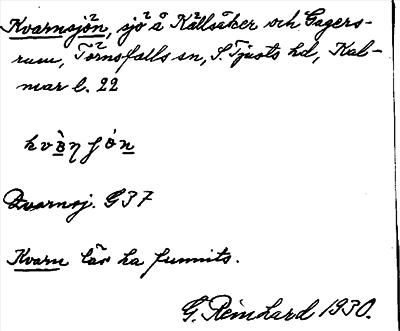 Kvarnsjön, sjö å Källsåker och Gagers-
rum, Törnsfalls sn, S. Tjusts hd, Kal-
mar l. 22
Qvarnsj. G 37
Kvarn lär ha funnits.
G. Reinhard 1930.